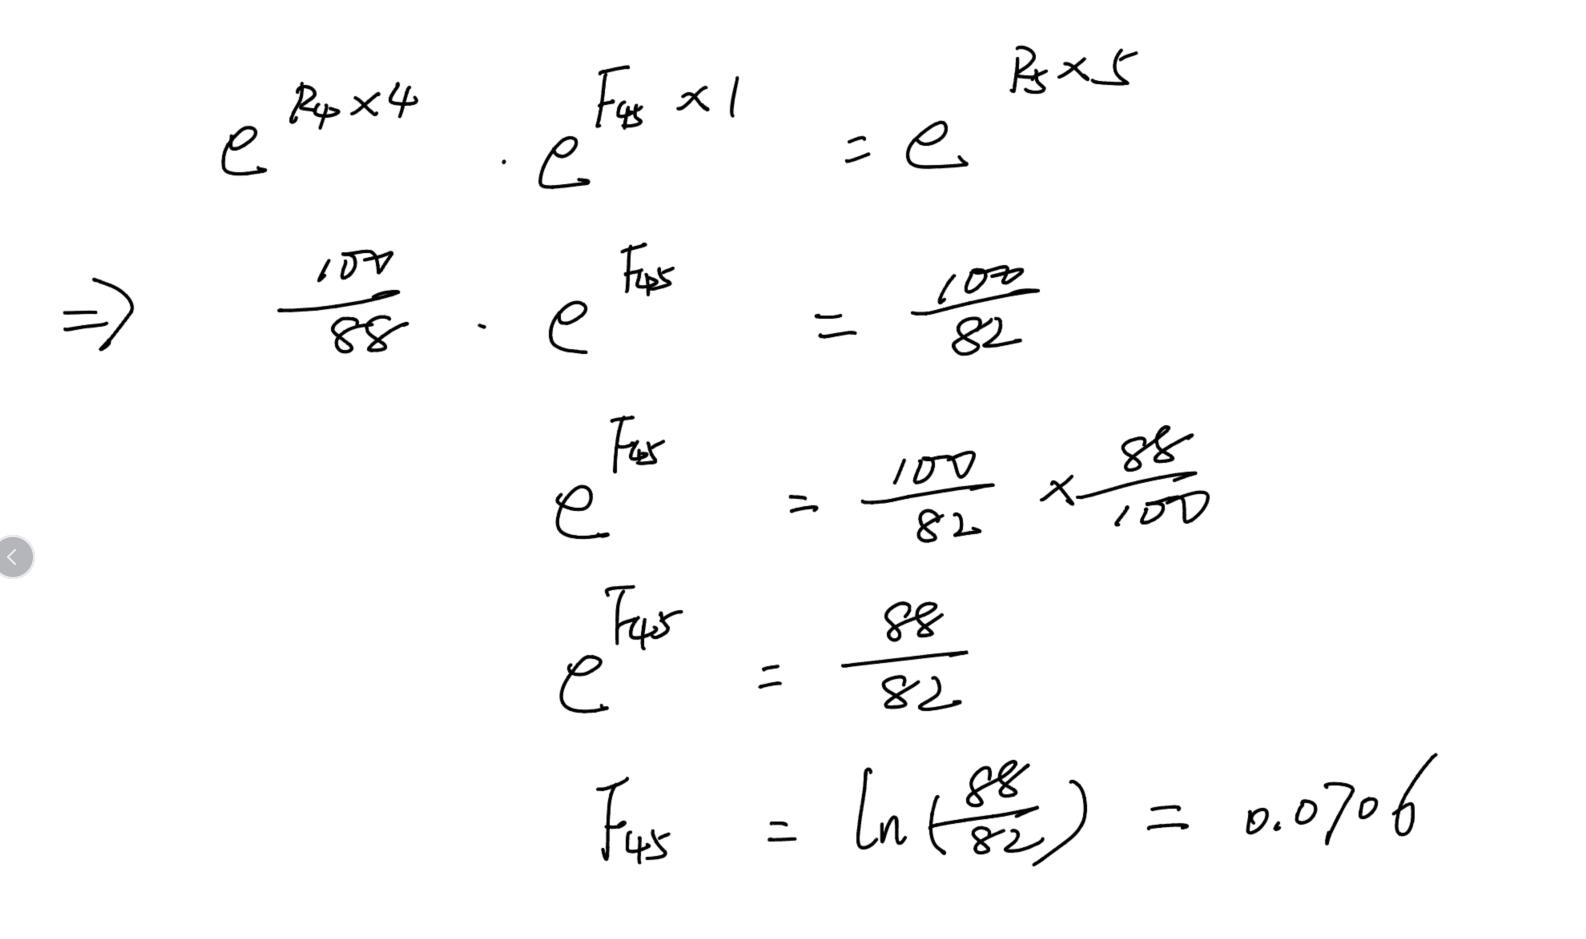 e^{R_4 × 4} · e^{F_{45} × 1} = e^{R_5 × 5}
⇒ \frac{100}{88} · e^{F_{45}} = \frac{100}{82}
e^{F_{45}} = \frac{100}{82} × \frac{88}{100}
e^{F_{45}} = \frac{88}{82}
F_{45} = ln(\frac{88}{82}) = 0.0706